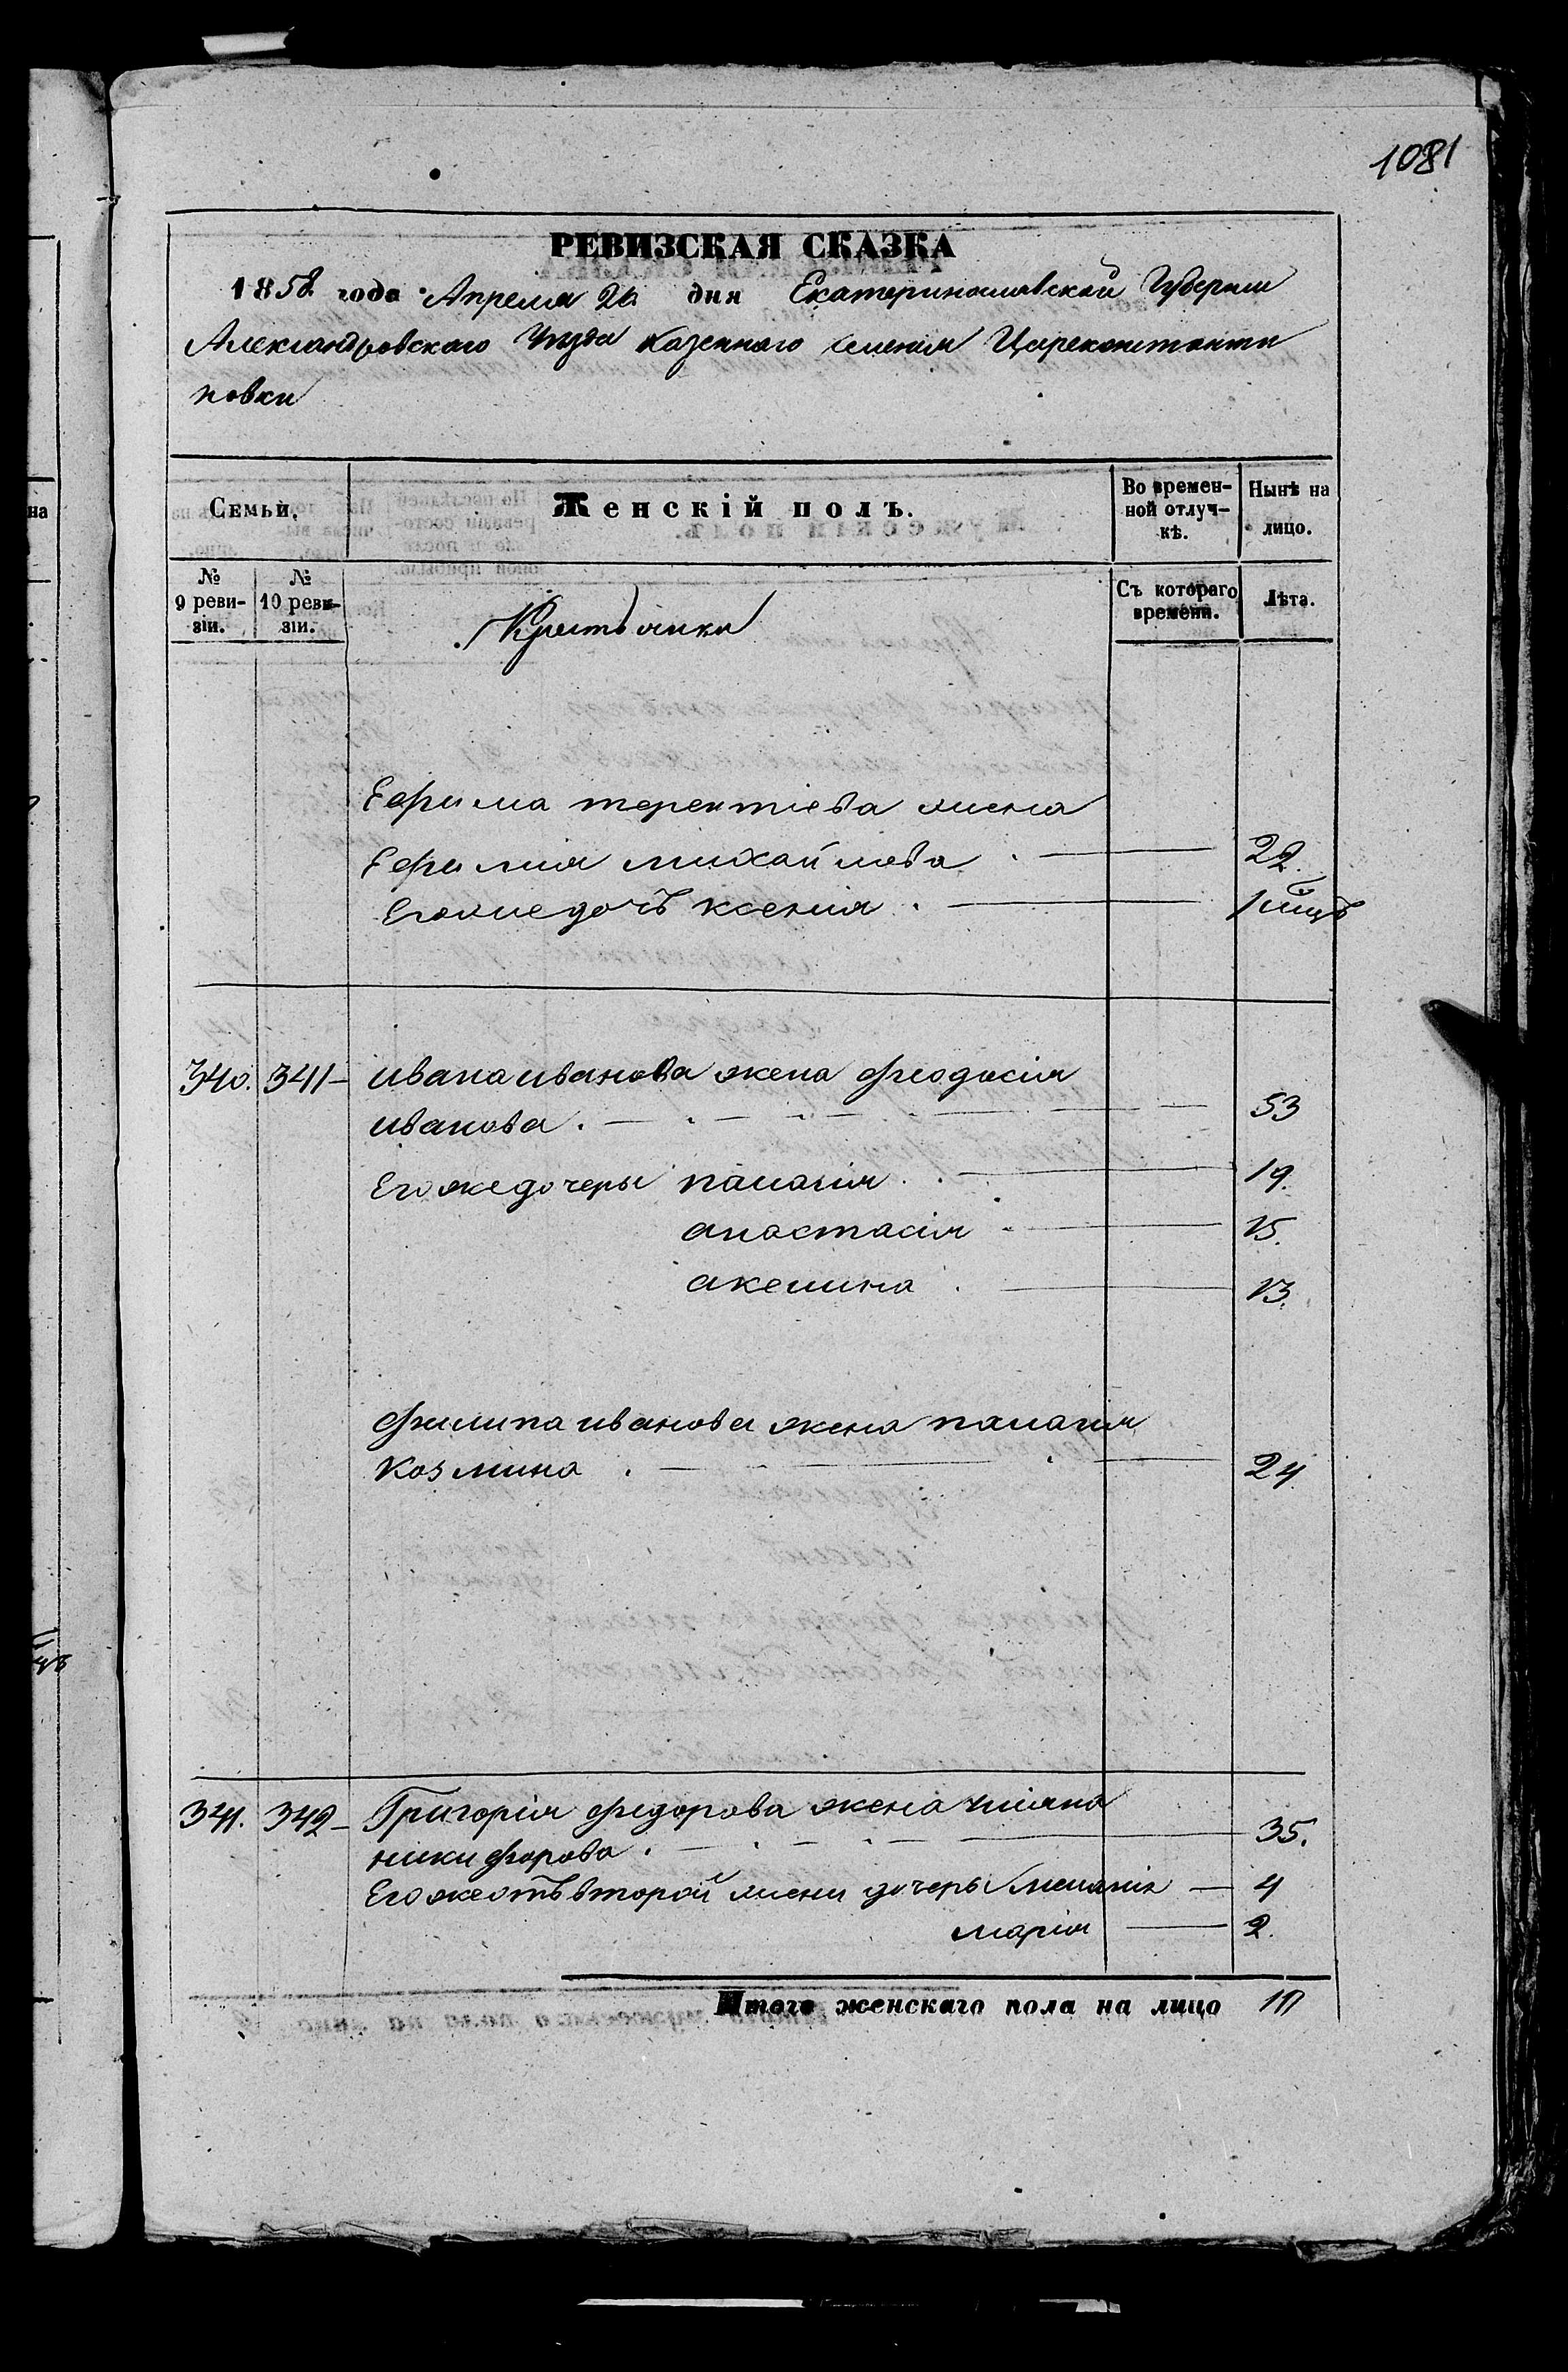 1081
РЕВИЗСКАЯ СКАЗКА
1858 года Апреля 26 дня Екатеринославской Губернии
Александровского Уезда Казенного селения Цареконстанти
новки
Семьи.
Женскій полъ.
Во времен-
ной отлуч-
кѣ.
Нынѣ на
лицо.
№
9 реви-
зіи.
№
10 реви-
зіи.
Крестьянки
Съ котораго
времени.
Лѣта.
Ефима терентіева жена
Ефимия михайлова 22.
Егоже дочь ксения
340. 341 ивана иванова жена феодосия
иванова 53
Егоже дочеры палагия 19.
анастасія 15.
акелина 13.
филипа иванова жена палагия
Козмина 24
341. 342 Григорія федорова жена улияна
никифорова 35.
Егоже отъ второй жени дочеры меланія 4
марія 2.
Итого женскаго пола на лицо